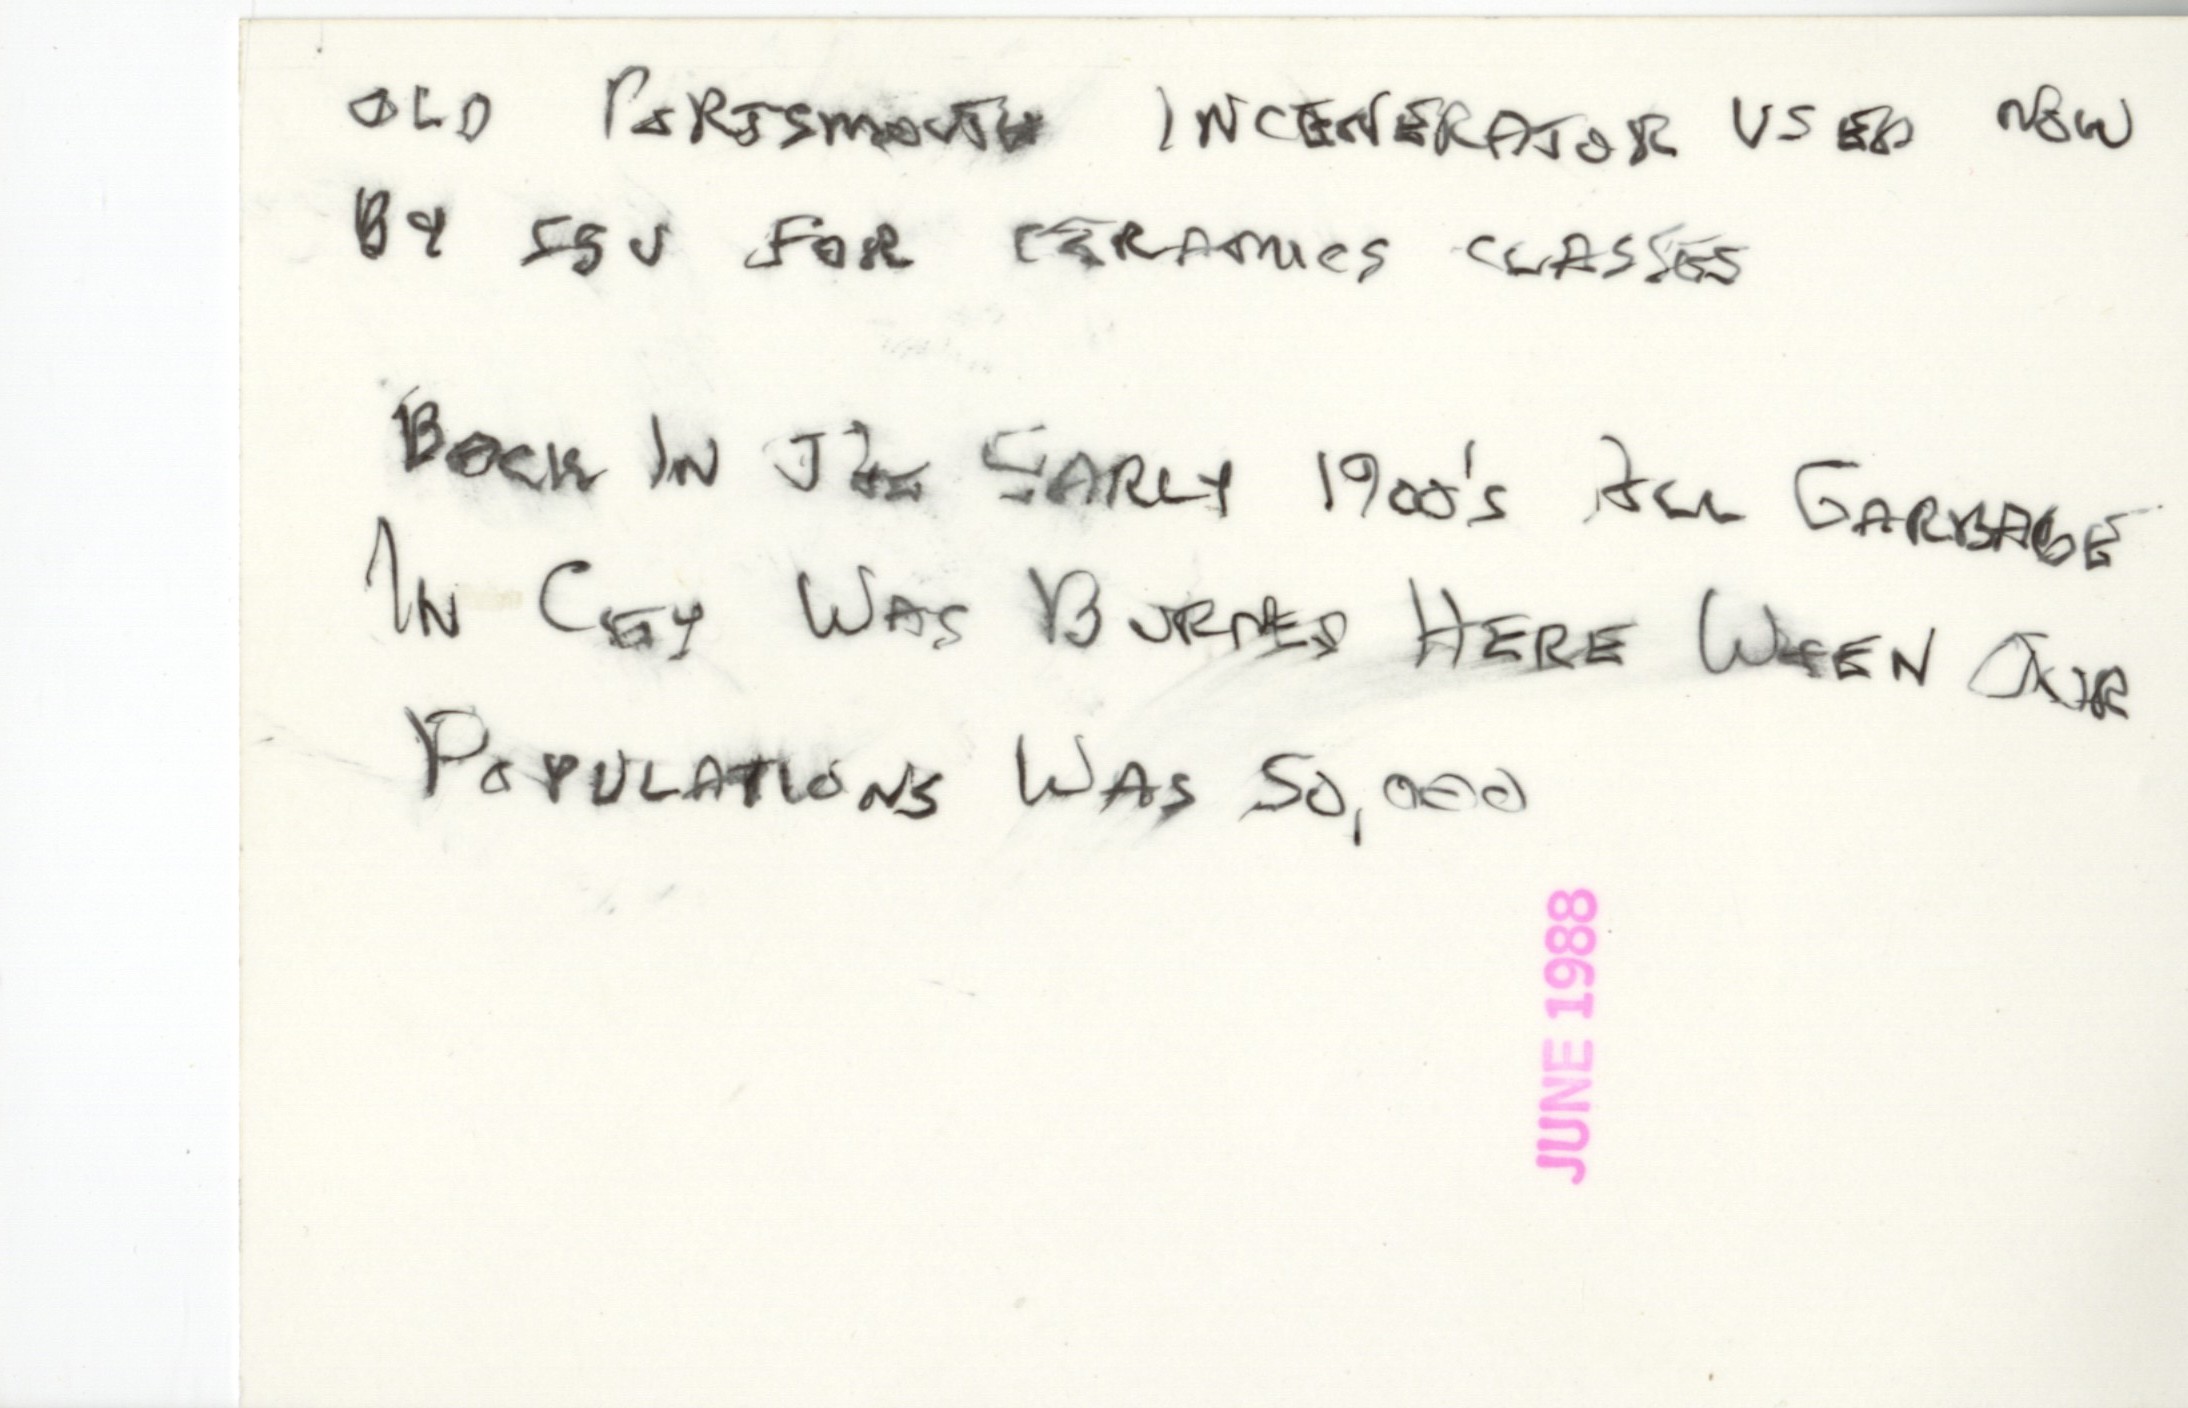 OLD PORTSMOUTH INCENERATOR USED NOW
BY SSU FOR CERAMICS CLASSES
BACK IN THE EARLY 1900'S ALL GARBAGE
IN CITY WAS BURNED HERE WHEN OUR
POPULATIONS WAS 50,000
JUNE 1988